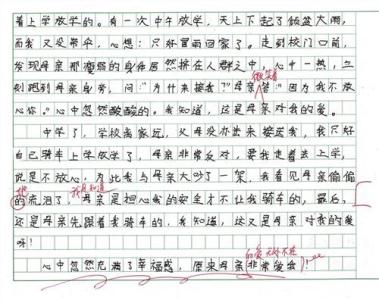 着上学放学的。有一次中午放学，天上下起了倾盆大雨，
而我又没带伞，心想：只好冒雨回家了。走到校门口前，
发现母亲那瘦弱的身体居然挤在人群之中，心中一热，立
微笑着
刻跑到母亲身旁，问："为什来接我？"母亲答："因为我不放
心你。"心中忽然酸酸的。我知道，这是母亲对我的爱。
中学了，学校离家远，父母没办法来接送我，我只好
自己骑车上学放学了，母亲非常反对，要我走着去上学，
说是不放心，为此我与母亲大吵了一架，我看见母亲偷偷
地
我知道
的流泪了，母亲是担心我的安全才不让我骑车的，最后，
还是母亲先跟着我骑车的，我知道，这又是母亲对我的爱
呀！
的爱无处不在
心中忽然充满了幸福感，原来母亲非常爱我！